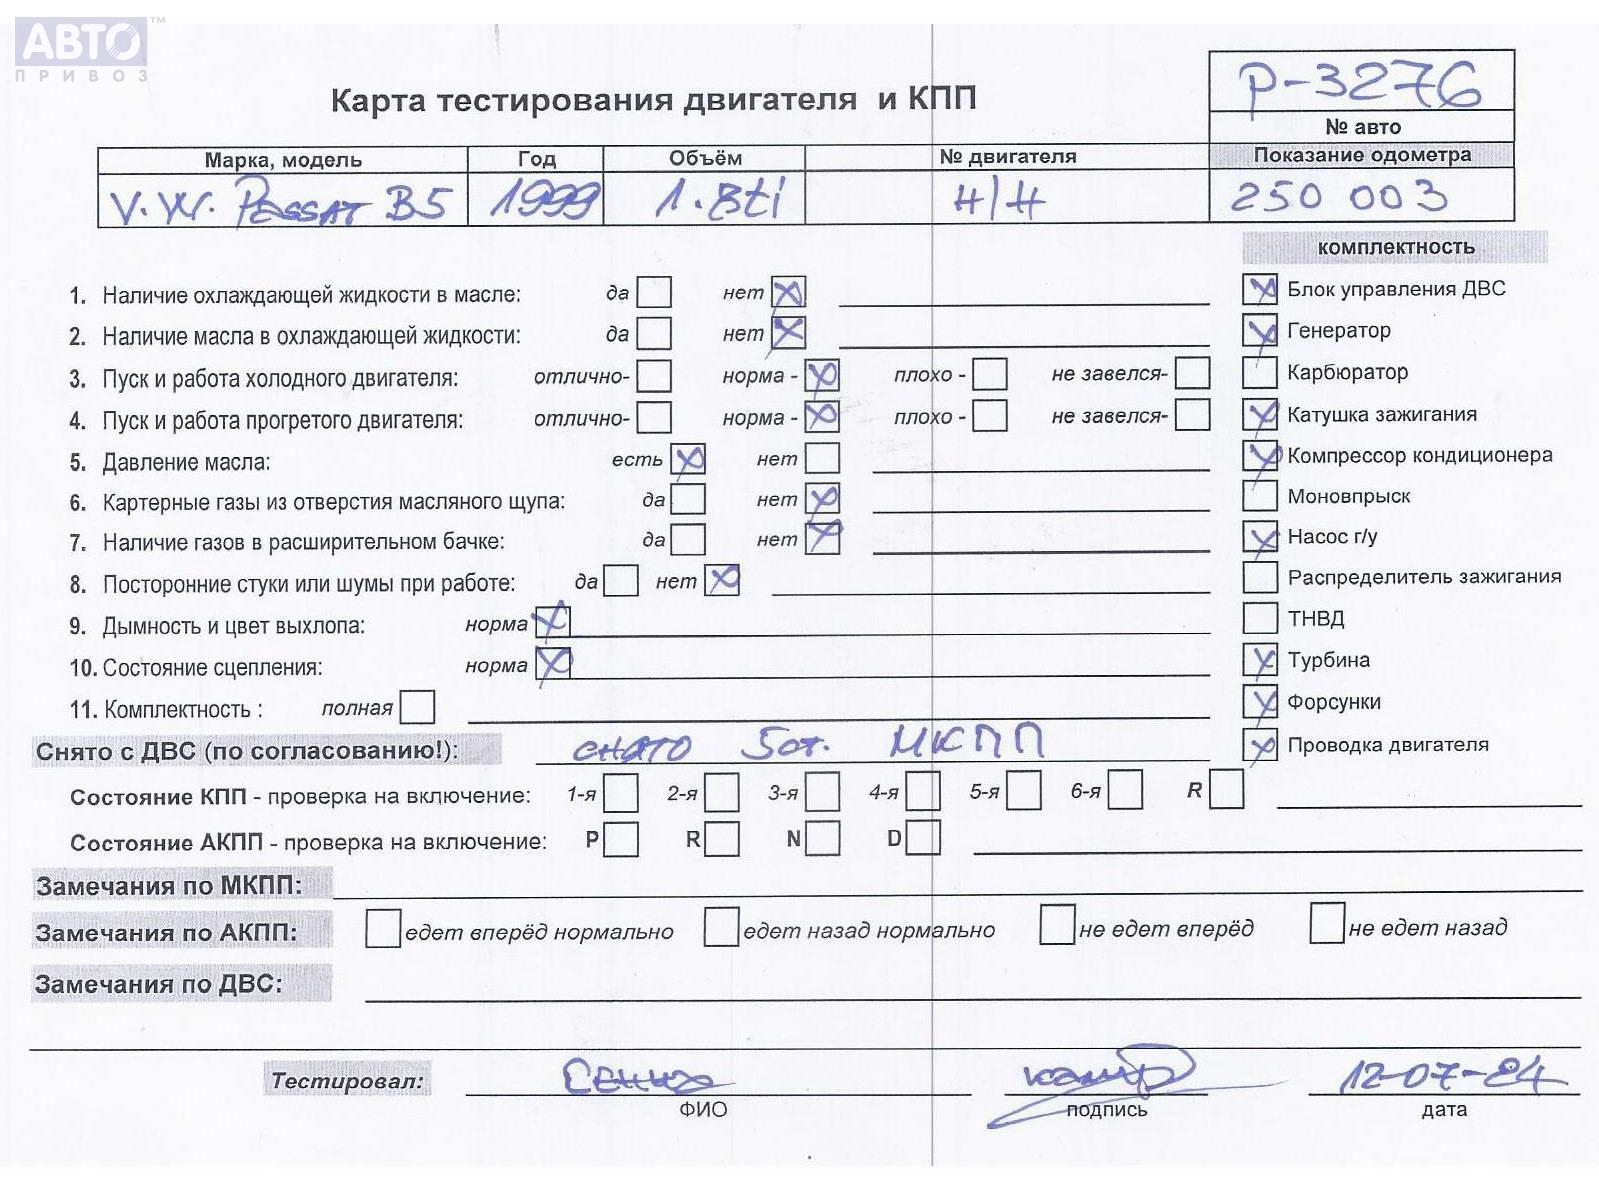 АВТО™
ПРИВОЗ
Р-3276
Карта тестирования двигателя и КПП
№ авто
Марка, модель Год Объём № двигателя Показание одометра
V.W. Passat B5 1999 1.8ti Н/Н 250 003
комплектность
1. Наличие охлаждающей жидкости в масле: да нет Блок управления ДВС
2. Наличие масла в охлаждающей жидкости: да нет Генератор
3. Пуск и работа холодного двигателя: отлично- норма - плохо - не завелся- Карбюратор
4. Пуск и работа прогретого двигателя: отлично- норма - плохо - не завелся- Катушка зажигания
5. Давление масла: есть нет Компрессор кондиционера
6. Картерные газы из отверстия масляного щупа: да нет Моновпрыск
7. Наличие газов в расширительном бачке: да нет Насос г/у
8. Посторонние стуки или шумы при работе: да нет Распределитель зажигания
9. Дымность и цвет выхлопа: норма ТНВД
10. Состояние сцепления: норма Турбина
11. Комплектность : полная Форсунки
Снято с ДВС (по согласованию!): снято 5ст. МКПП Проводка двигателя
Состояние КПП - проверка на включение: 1-я 2-я 3-я 4-я 5-я 6-я R
Состояние АКПП - проверка на включение: P R N D
Замечания по МКПП:
Замечания по АКПП: едет вперёд нормально едет назад нормально не едет вперёд не едет назад
Замечания по ДВС:
Тестировал: 12-07-24
ФИО подпись дата